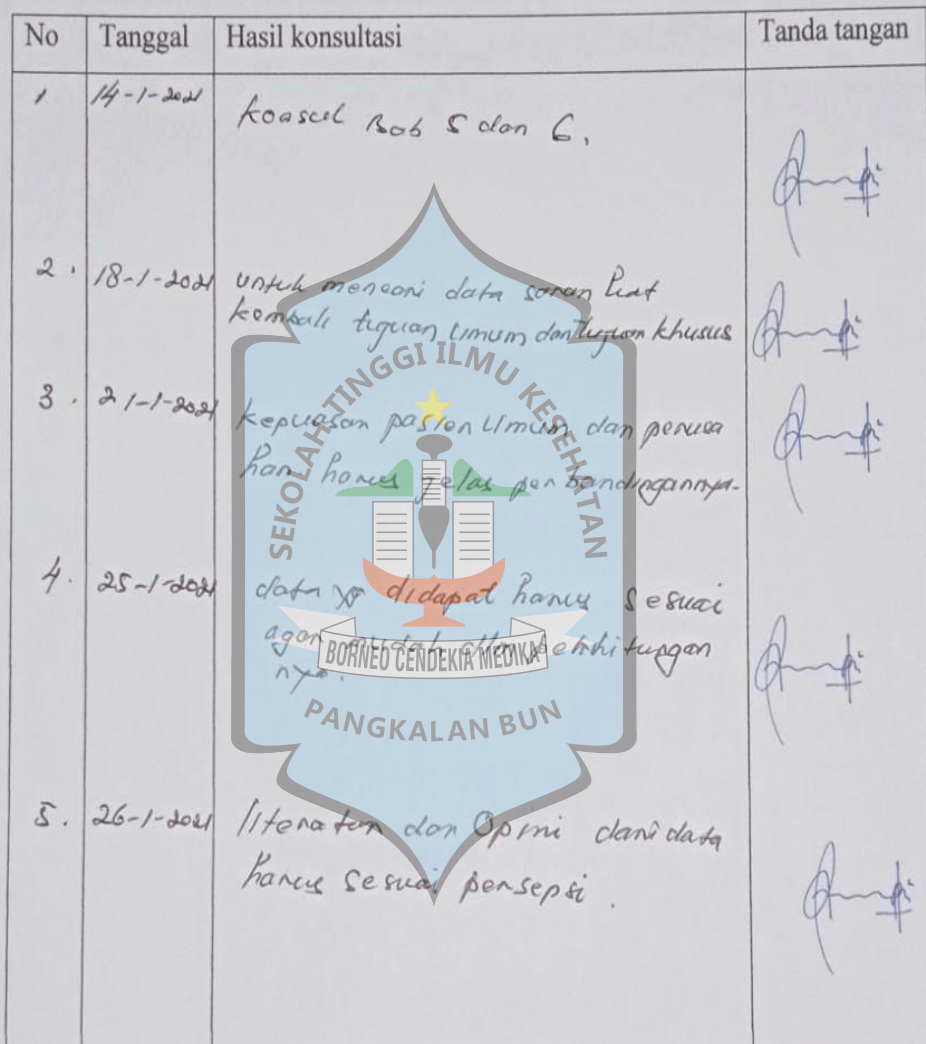 No Tanggal Hasil konsultasi Tanda tangan
1 14-1-2021 konsul Bab 5 dan 6.
2. 18-1-2021 untuk mencari data saran lihat
kembali tujuan umum dan tujuan khusus
3. 21-1-2021 kepuasan pasien umum dan perusa
haan harus jelas perbandingannya.
4. 25-1-2021 data yg didapat harus sesuai
agar mudah dlm perhitungan
nya.
5. 26-1-2021 literatur dan Opini dari data
harus sesuai persepsi.
SEKOLAH TINGGI ILMU KESEHATAN
BORNEO CENDEKIA MEDIKA
PANGKALAN BUN